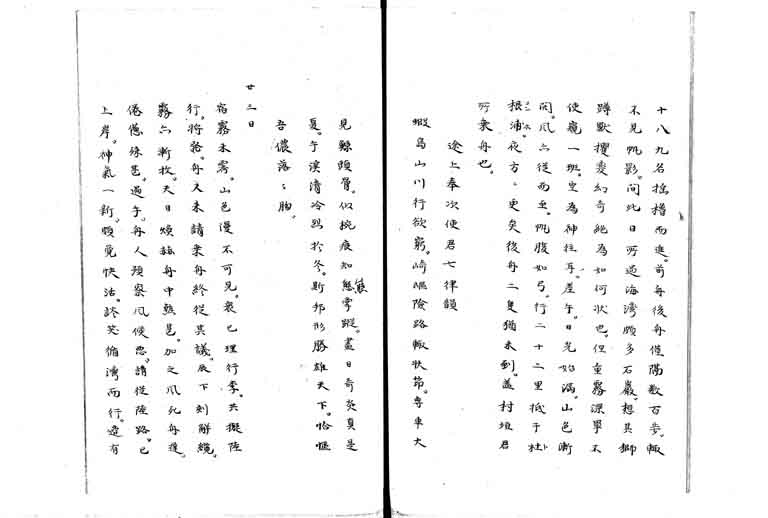 十八九名搖櫓而進。前舟後舟僅隔數百步。輙
不見帆影。聞此日所過海灣頗多石巖。想其獅
蹲獸攫變幻奇絕為如何狀也。但重霧深罩不
使窺一班。坐為神往耳。差午。日光始漏。山色漸
開。風亦從而至。帆腹如弓。行二十二里抵于杜
根浦。夜方二更矣後舟二隻猶未到。蓋村垣君
所乘舟也。
途上奉次使君七律韻
蝦島山川行欲窮。崎嶇險路輙狀笻。專車大
見鯨頭骨。似椀痕知熊掌蹤。盡日奇炎真是
夏。午溪清冷烈於冬。斯邦形勝雄天下。恰愜
吾儂落々胸。
廿三日
宿霧未霽。山色漫不可見。裝已理行李。共擬陸
行。將發。舟人來請乘舟終從其議。辰下刻解纜。
霧亦漸收。天日煩赫舟中甑邑。加之風死舟遲。
倦憊殊甚。過午。舟人預察風候惡。請從陸路。已
上岸。神氣一新。頗覺快活。談笑循灣而行。還有